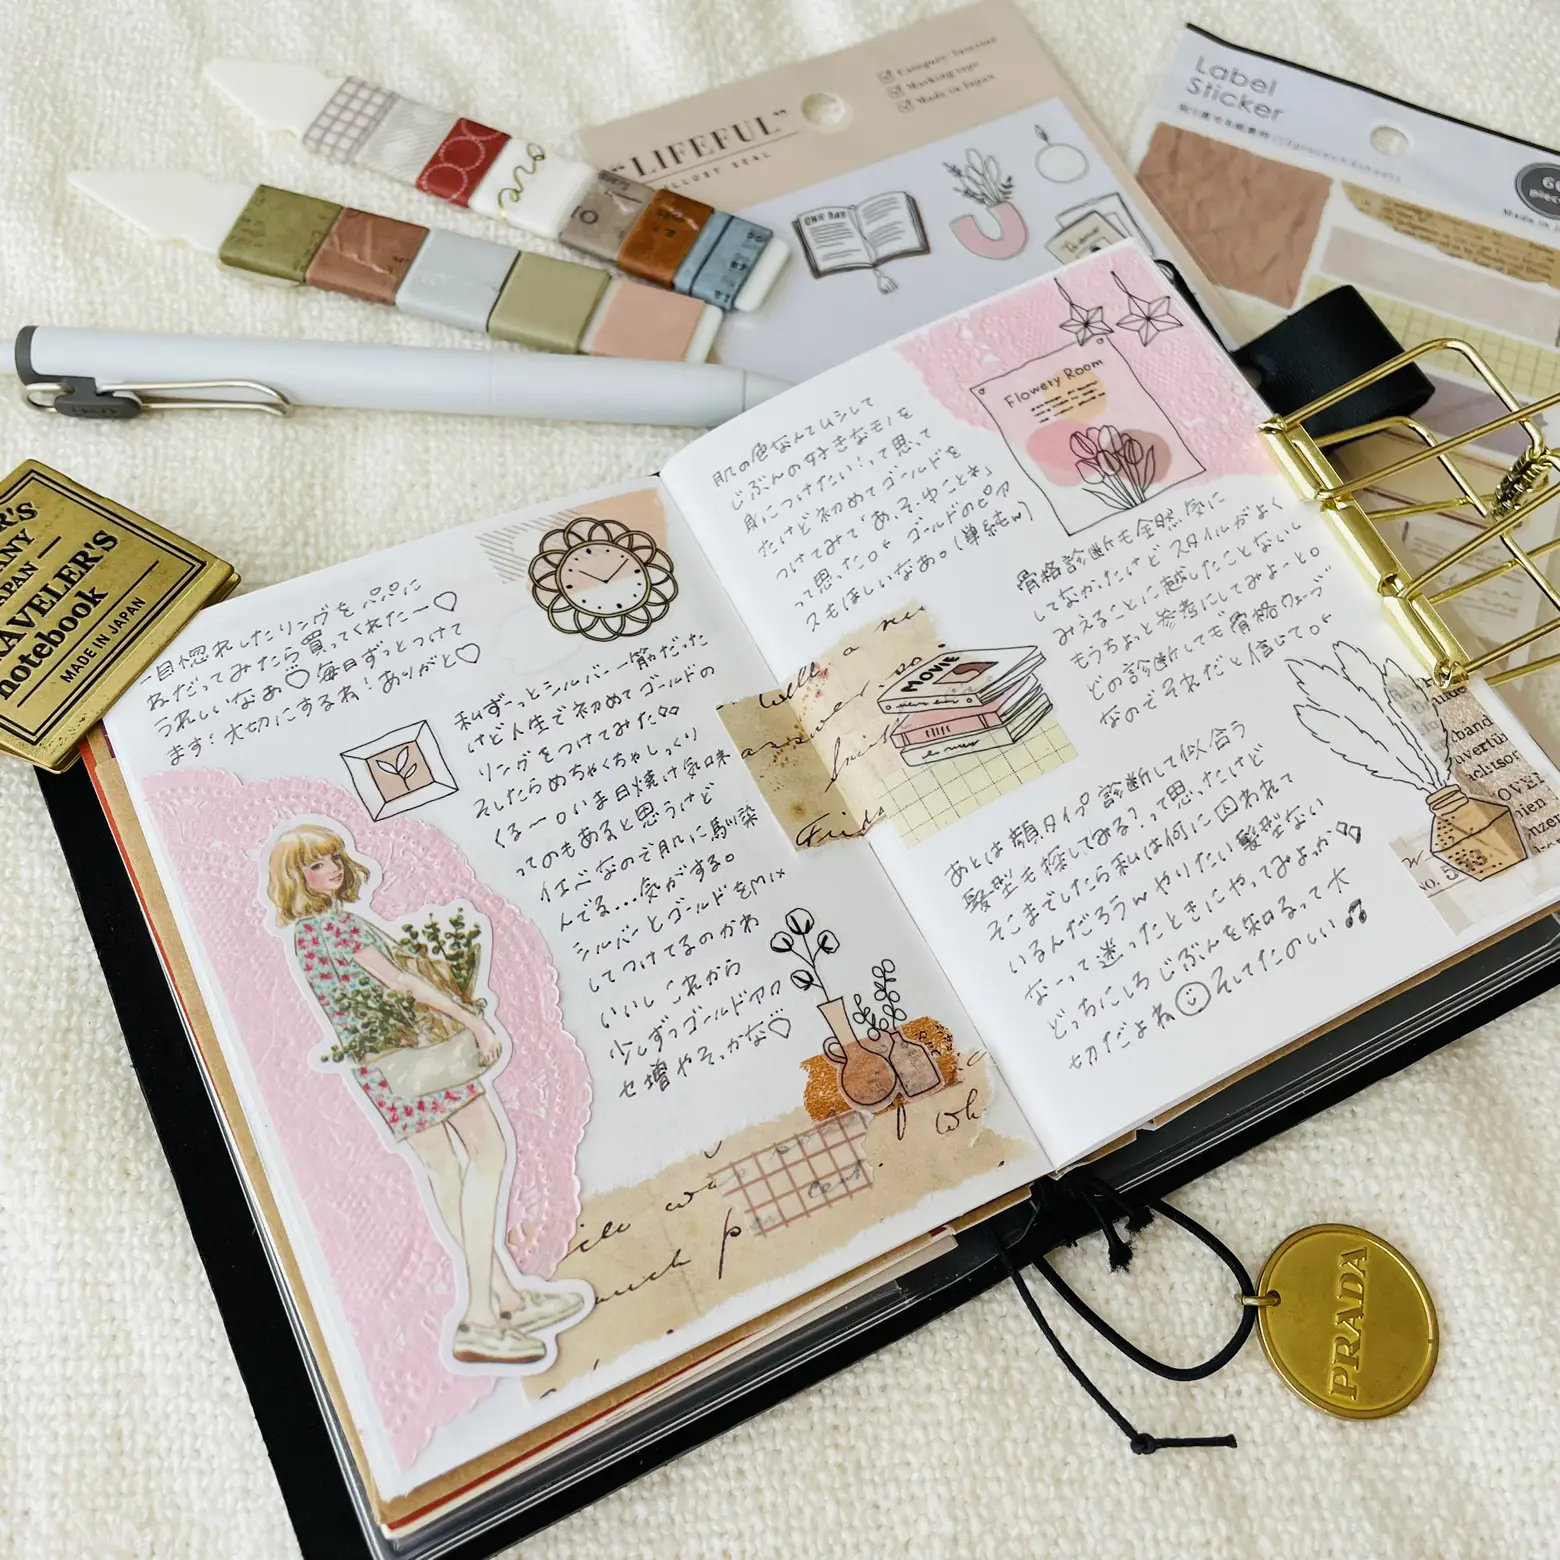 "LIFEFUL"
Masking tape
Made in Japan
Label
Sticker
ONE DAY
Love
TRAVELER'S
notebook
MADE IN JAPAN
一目惚れしたリングをパパに
ねだってみたら買ってくれた〜♡
うれしいなあ♡毎日ずっとつけて
ます!大切にするね!ありがと♡
私ずーっとシルバー一筋だった
けど人生で初めてゴールドの
リングをつけてみた
そしたらめちゃくちゃしっくり
くる〜。いま日焼け気味
ってのもあると思うけど
イエベなので肌に馴染
んでる…気がする。
シルバーとゴールドをMIX
してつけてるのかわ
いいしこれから
少しずつゴールドアクセ
増やそっかな♡
肌の色なんてムシして
じぶんの好きなモノを
身につけたい!って思って
たけど初めてゴールドを
つけてみて「あ、そゆことね」
って思った。ゴールドのピア
スもほしいなあ。(単純w)
Flowery Room
骨格診断も全然気に
してなかったけどスタイルがよく
みえることに越したことないし
もうちょっと参考にしてみよーと。
どの診断しても骨格ウェーブ
なのでそれだと信じて。
MOVIE
あとは顔タイプ診断して似合う
髪型も探してみる?って思ったけど
そこまでしたら私は何に囚われて
いるんだろうwやりたい髪型ない
なーって迷ったときにやってみよっか
どっちにしろじぶんを知るって大
切だよねそしてたのしい♫
PRADA